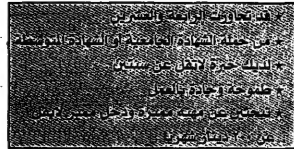 * قد تجاوزت الرابعة والعشرين
* من حملة الشهادة الجامعية أو الشهادة المتوسطة
* لديك خبرة لا تقل عن سنتين
* طموحة وجادة بالعمل
* تبحثين عن مهنة مميزة ودخل مميز لا يقل
عن ٢٠٠ دينار شهريا